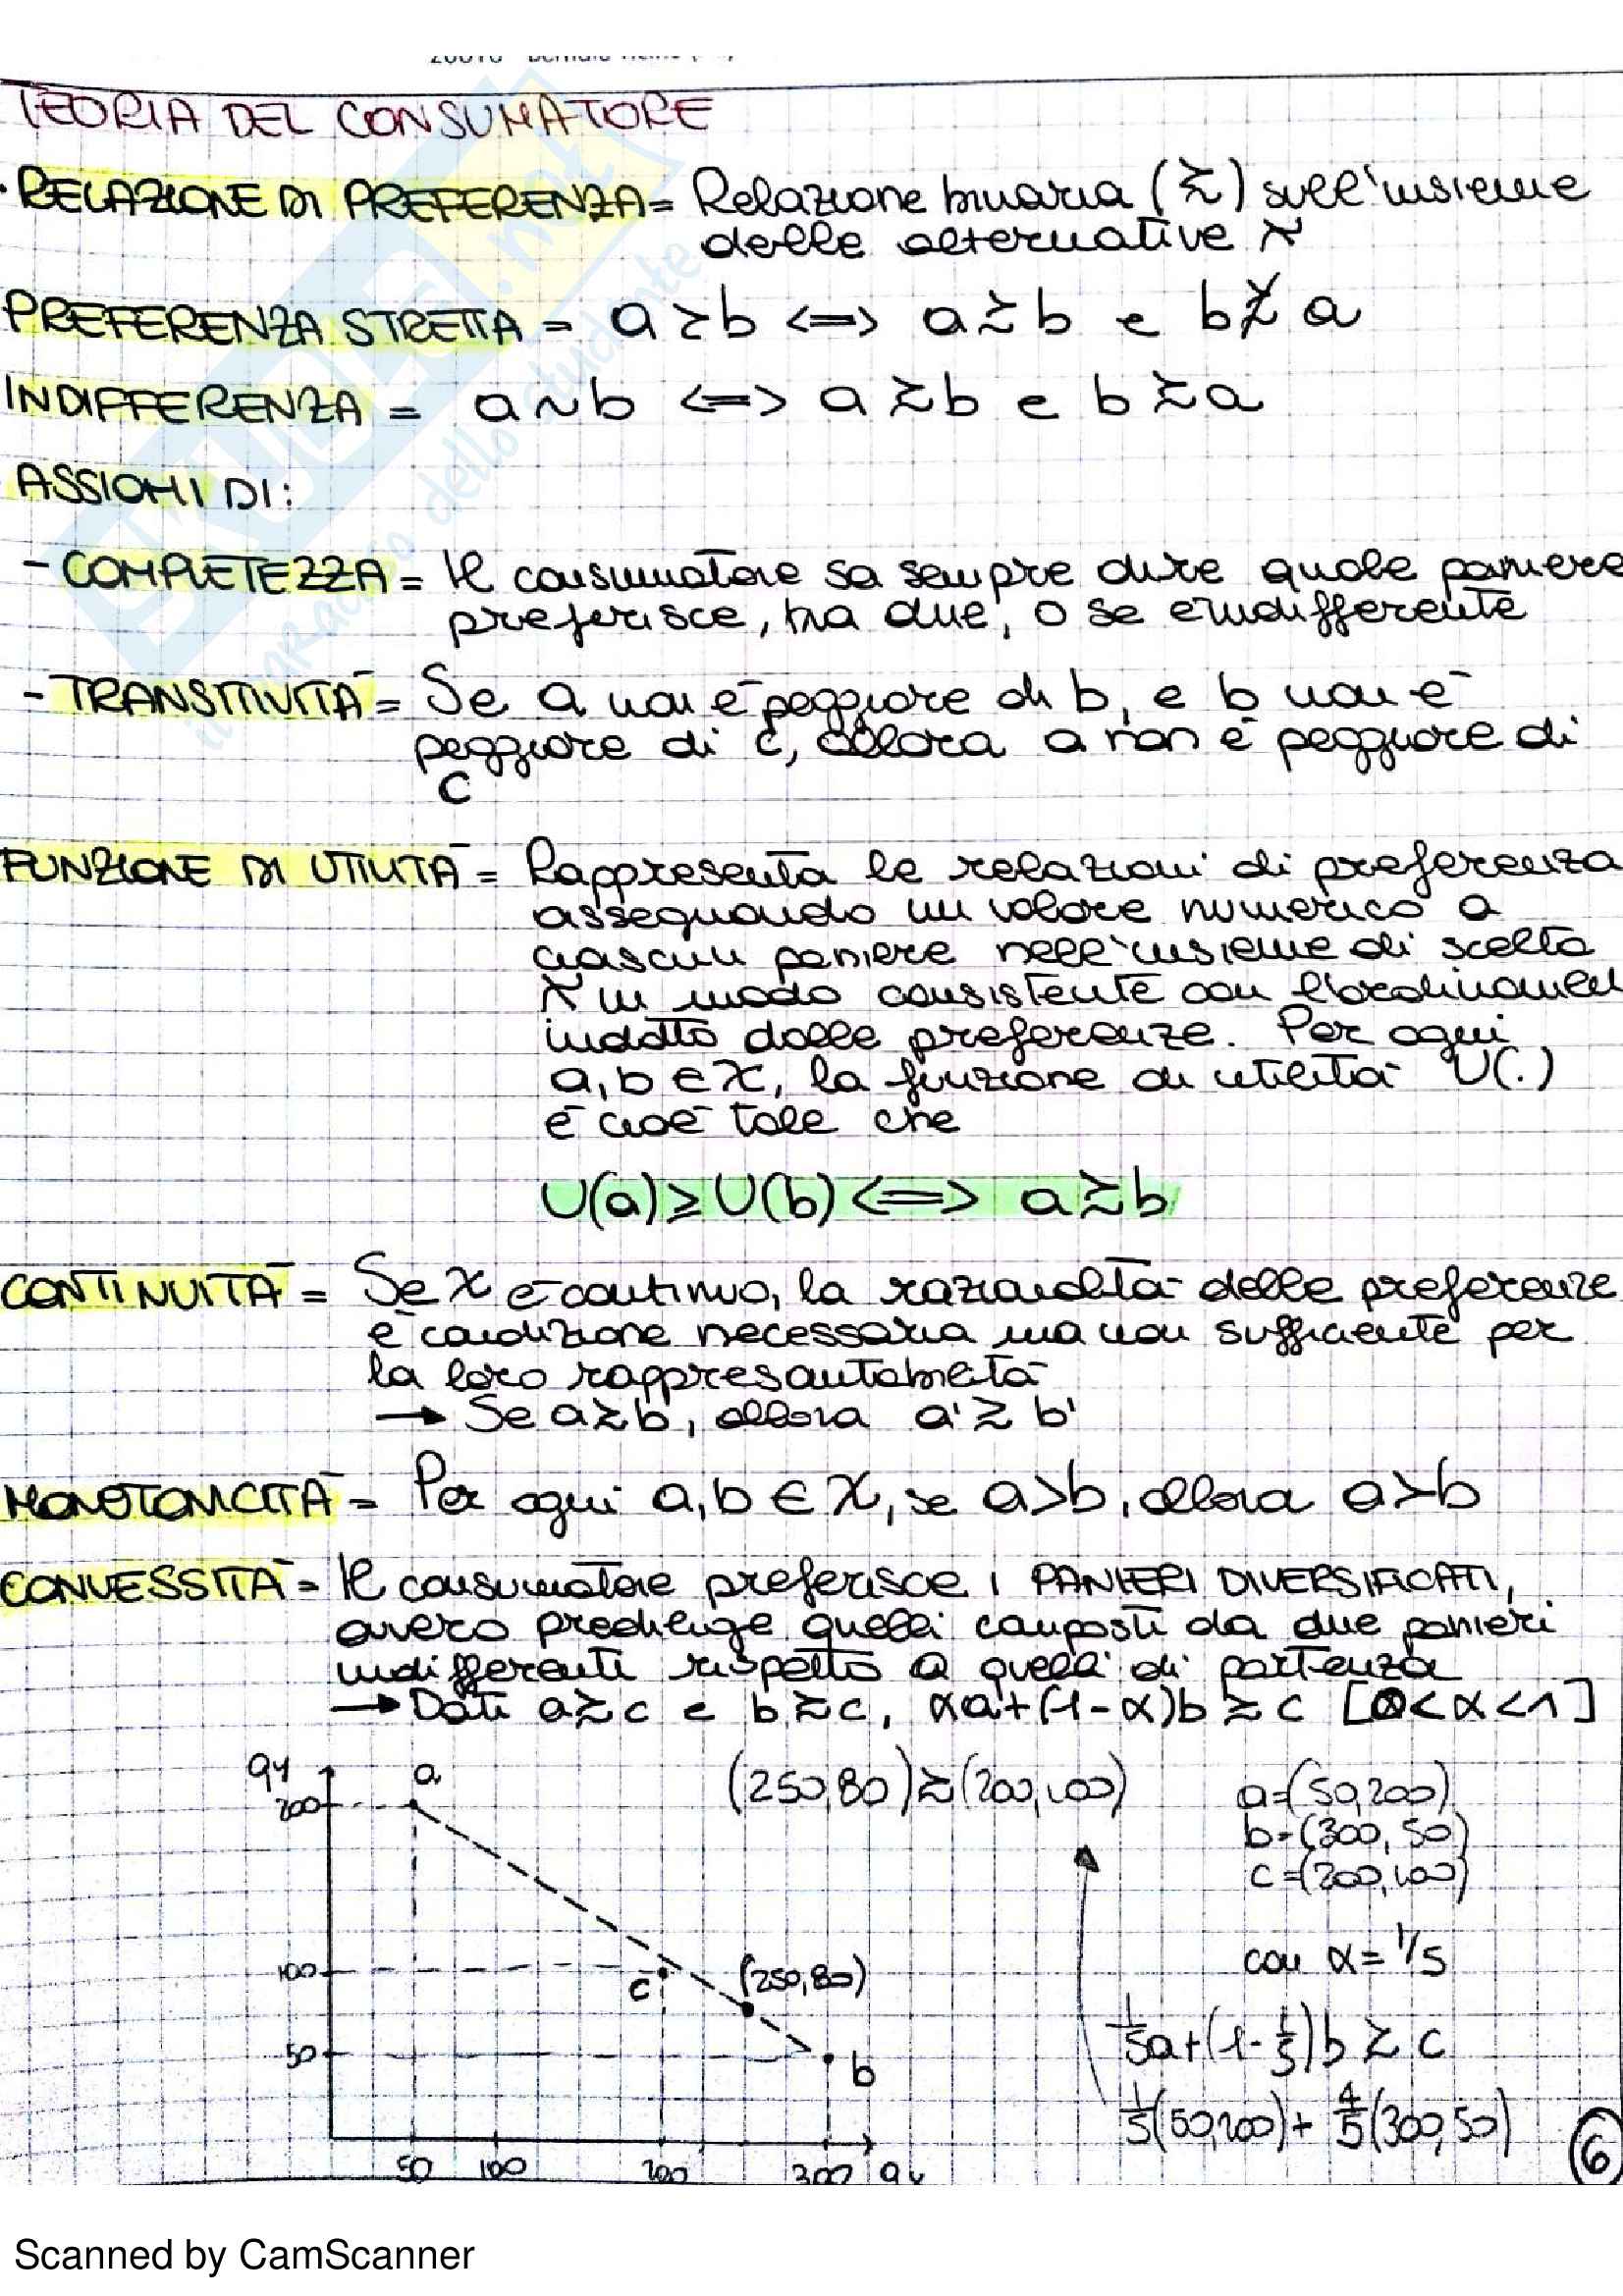 TEORIA DEL CONSUMATORE
· RELAZIONE DI PREFERENZA = Relazione binaria (≿) sull'insieme
delle alternative X
PREFERENZA STRETTA = a ≻ b <=> a ≿ b e b ⋡ a
INDIFFERENZA = a ~ b <=> a ≿ b e b ≿ a
ASSIOMI DI:
- COMPLETEZZA = Il consumatore sa sempre dire quale paniere
preferisce, tra due, o se è indifferente
- TRANSITIVITÀ = Se a non è peggiore di b, e b non è
peggiore di c, allora a non è peggiore di
c
FUNZIONE DI UTILITÀ = Rappresenta le relazioni di preferenza
assegnando un valore numerico a
ciascun paniere nell'insieme di scelta
X in modo consistente con l'ordinamen
indotto dalle preferenze. Per ogni
a, b ∈ X, la funzione di utilità U(.)
è cioè tale che
U(a) ≥ U(b) <=> a ≿ b
CONTINUITÀ = Se X è continuo, la razionalità delle preferenze
è condizione necessaria ma non sufficiente per
la loro rappresantabilità
→ Se a ≿ b, allora a' ≿ b'
MONOTONICITÀ = Per ogni a, b ∈ X, se a > b, allora a ≻ b
CONVESSITÀ = Il consumatore preferisce i PANIERI DIVERSIFICATI,
ovvero predilige quelli composti da due panieri
indifferenti rispetto a quelli di partenza
→ Dati a ≿ c e b ≿ c, αa + (1-α)b ≿ c [0 < α < 1]
qy
200
a
(250,80) ≿ (200,100)
a = (50,200)
b = (300,50)
c = (200,100)
con α = 1/5
100
c
(250,80)
1/5 a + (1 - 1/5) b ≿ c
50
b
1/5 (50,200) + 4/5 (300,50)
6
50 100 200 300
Scanned by CamScanner
SKUOLA.net
il paradiso dello studente